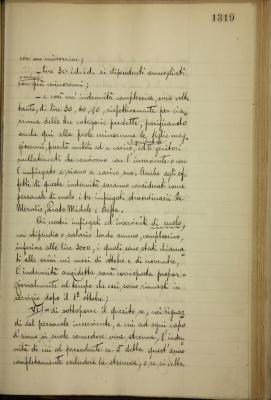 1319
con un minorenne;
– lire 30 id. id. ai dipendenti ammogliati
con più minorenni;
– e così un'indennità complessiva, una volta
tanto, di lire 30, 60, 90, rispettivamente per cia=
scuna delle tre categorie predette, parificando
anche qui alla prole minorenne le figlie mag
giorenni, purchè nubili ed a carico, ed i genitori
nullatenenti che convivono con l'inserviente o con
l'impiegato e siano a carico suo. Anche agli ef=
fetti di questa indennità saranno considerati come
personale di ruolo i tre impiegati straordinari De
Michele e
Ai nostri impiegati ed inservienti di ruolo,
con stipendio o salario lordo annuo, complessivo,
inferiore alle lire 3000, i quali sono stati chiama
ti alle armi nei mesi di ottobre e di novembre,
l'indennità anzidetta sarà corrisposta propor=
zionalmente al tempo che essi sono rimasti in
servizio dopo il 1° ottobre;
VI) – di sottoporre il quesito se, nei riguar
di del personale inserviente, a cui ad ogni capo
d'anno si suole concedere una strenna, l'inden
nità di cui al precedente n. 5 debba quest'anno
completamente escludere la strenna, o se si debba